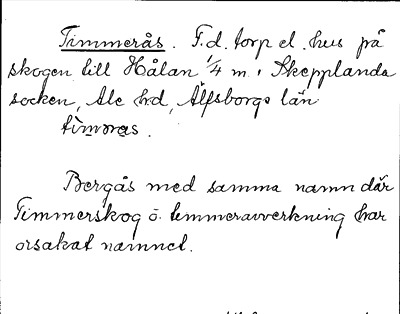 Timmerås. F.d. torp el. hus på
skogen till Hålan 1/4 m. i Skepplanda
socken, Ale hd, Älfsborgs län
timəras.
Bergås med samma namn där
Timmerskog o. timmeravverkning har
orsakat namnet.